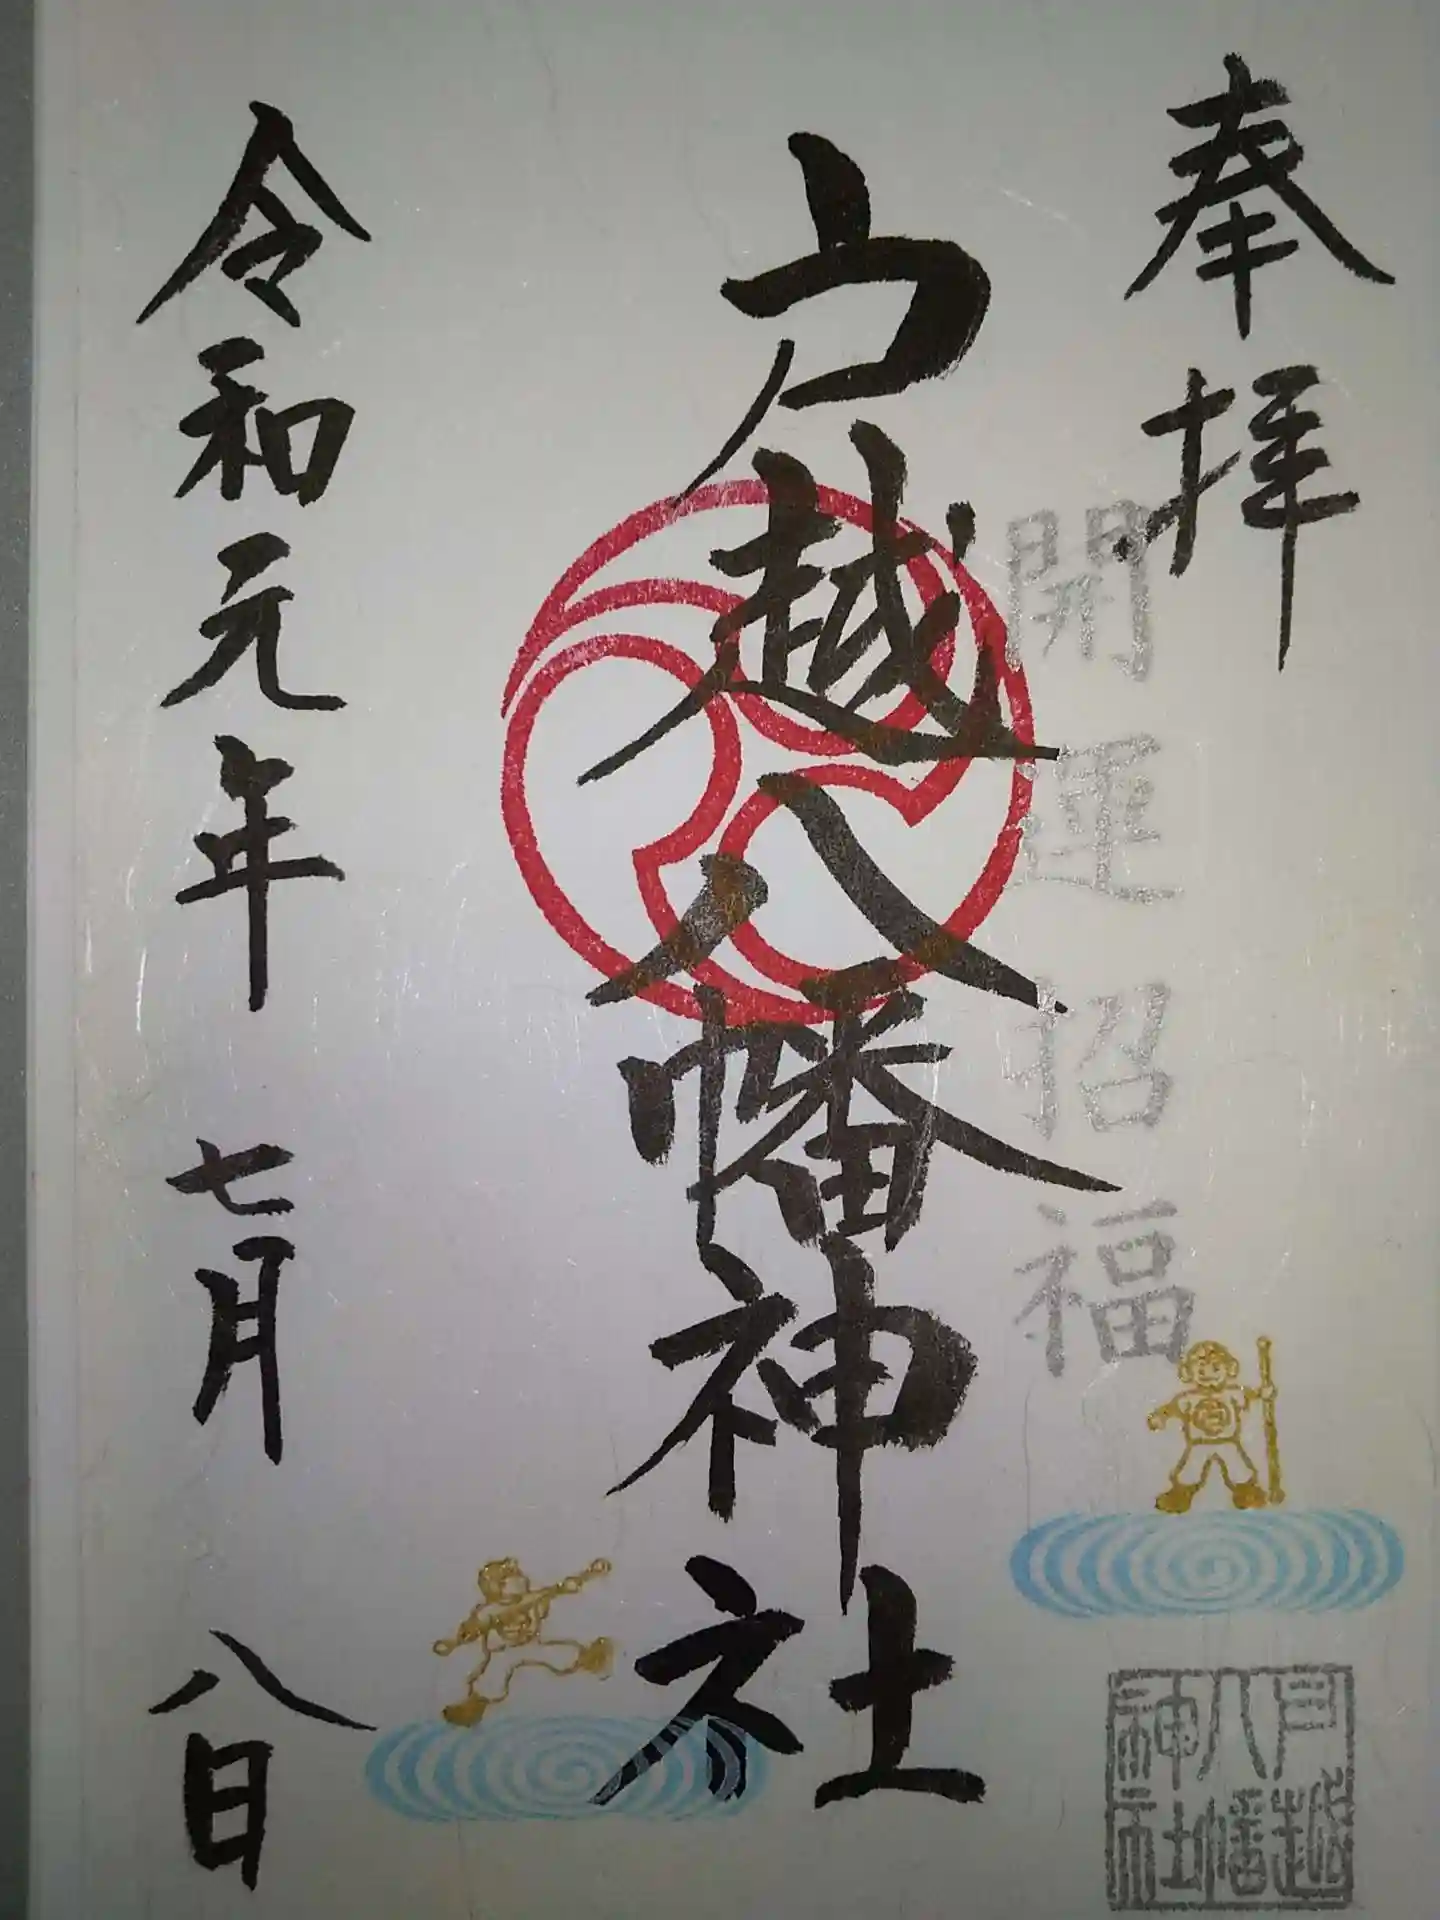 奉拝
開運招福
戸越八幡神社
令和元年七月八日
戸越
八幡
神社